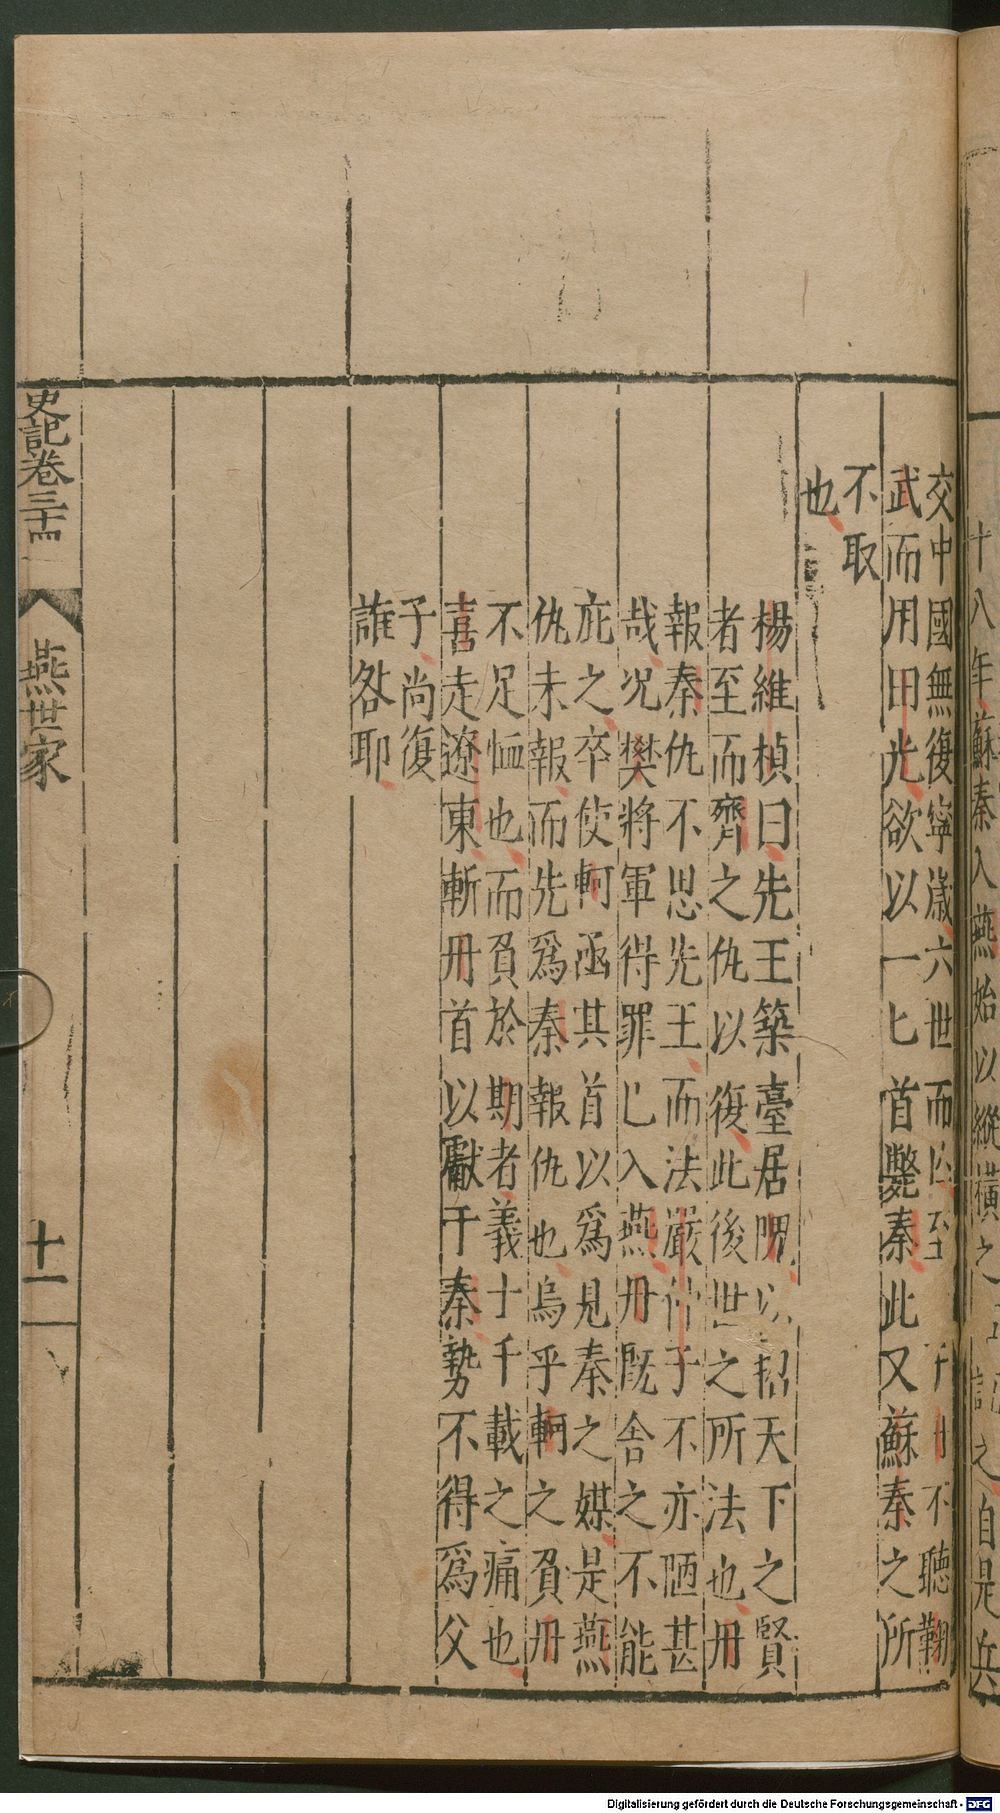 十八年蘇秦入燕始以縱橫之
之自是兵
交中國無復寧歲六世而
至
不聽鞠
武而用田光欲以一匕首斃秦此又蘇秦之所
不取
也
楊維楨曰先王築臺居隗以招天下之賢
者至而齊之仇以復此後世之所法也丹
報秦仇不思先王而法嚴仲子不亦陋甚
哉况樊將軍得罪已入燕丹既舍之不能
庇之卒使軻函其首以爲見秦之媒是燕
仇未報而先爲秦報仇也烏乎軻之負丹
不足恤也而負於期者義士千載之痛也
喜走遼東斬丹首以獻于秦勢不得爲父
子尚復
誰咎耶
史記卷三十四
燕世家
十一
Digitalisierung gefördert durch die Deutsche Forschungsgemeinschaft - DFG